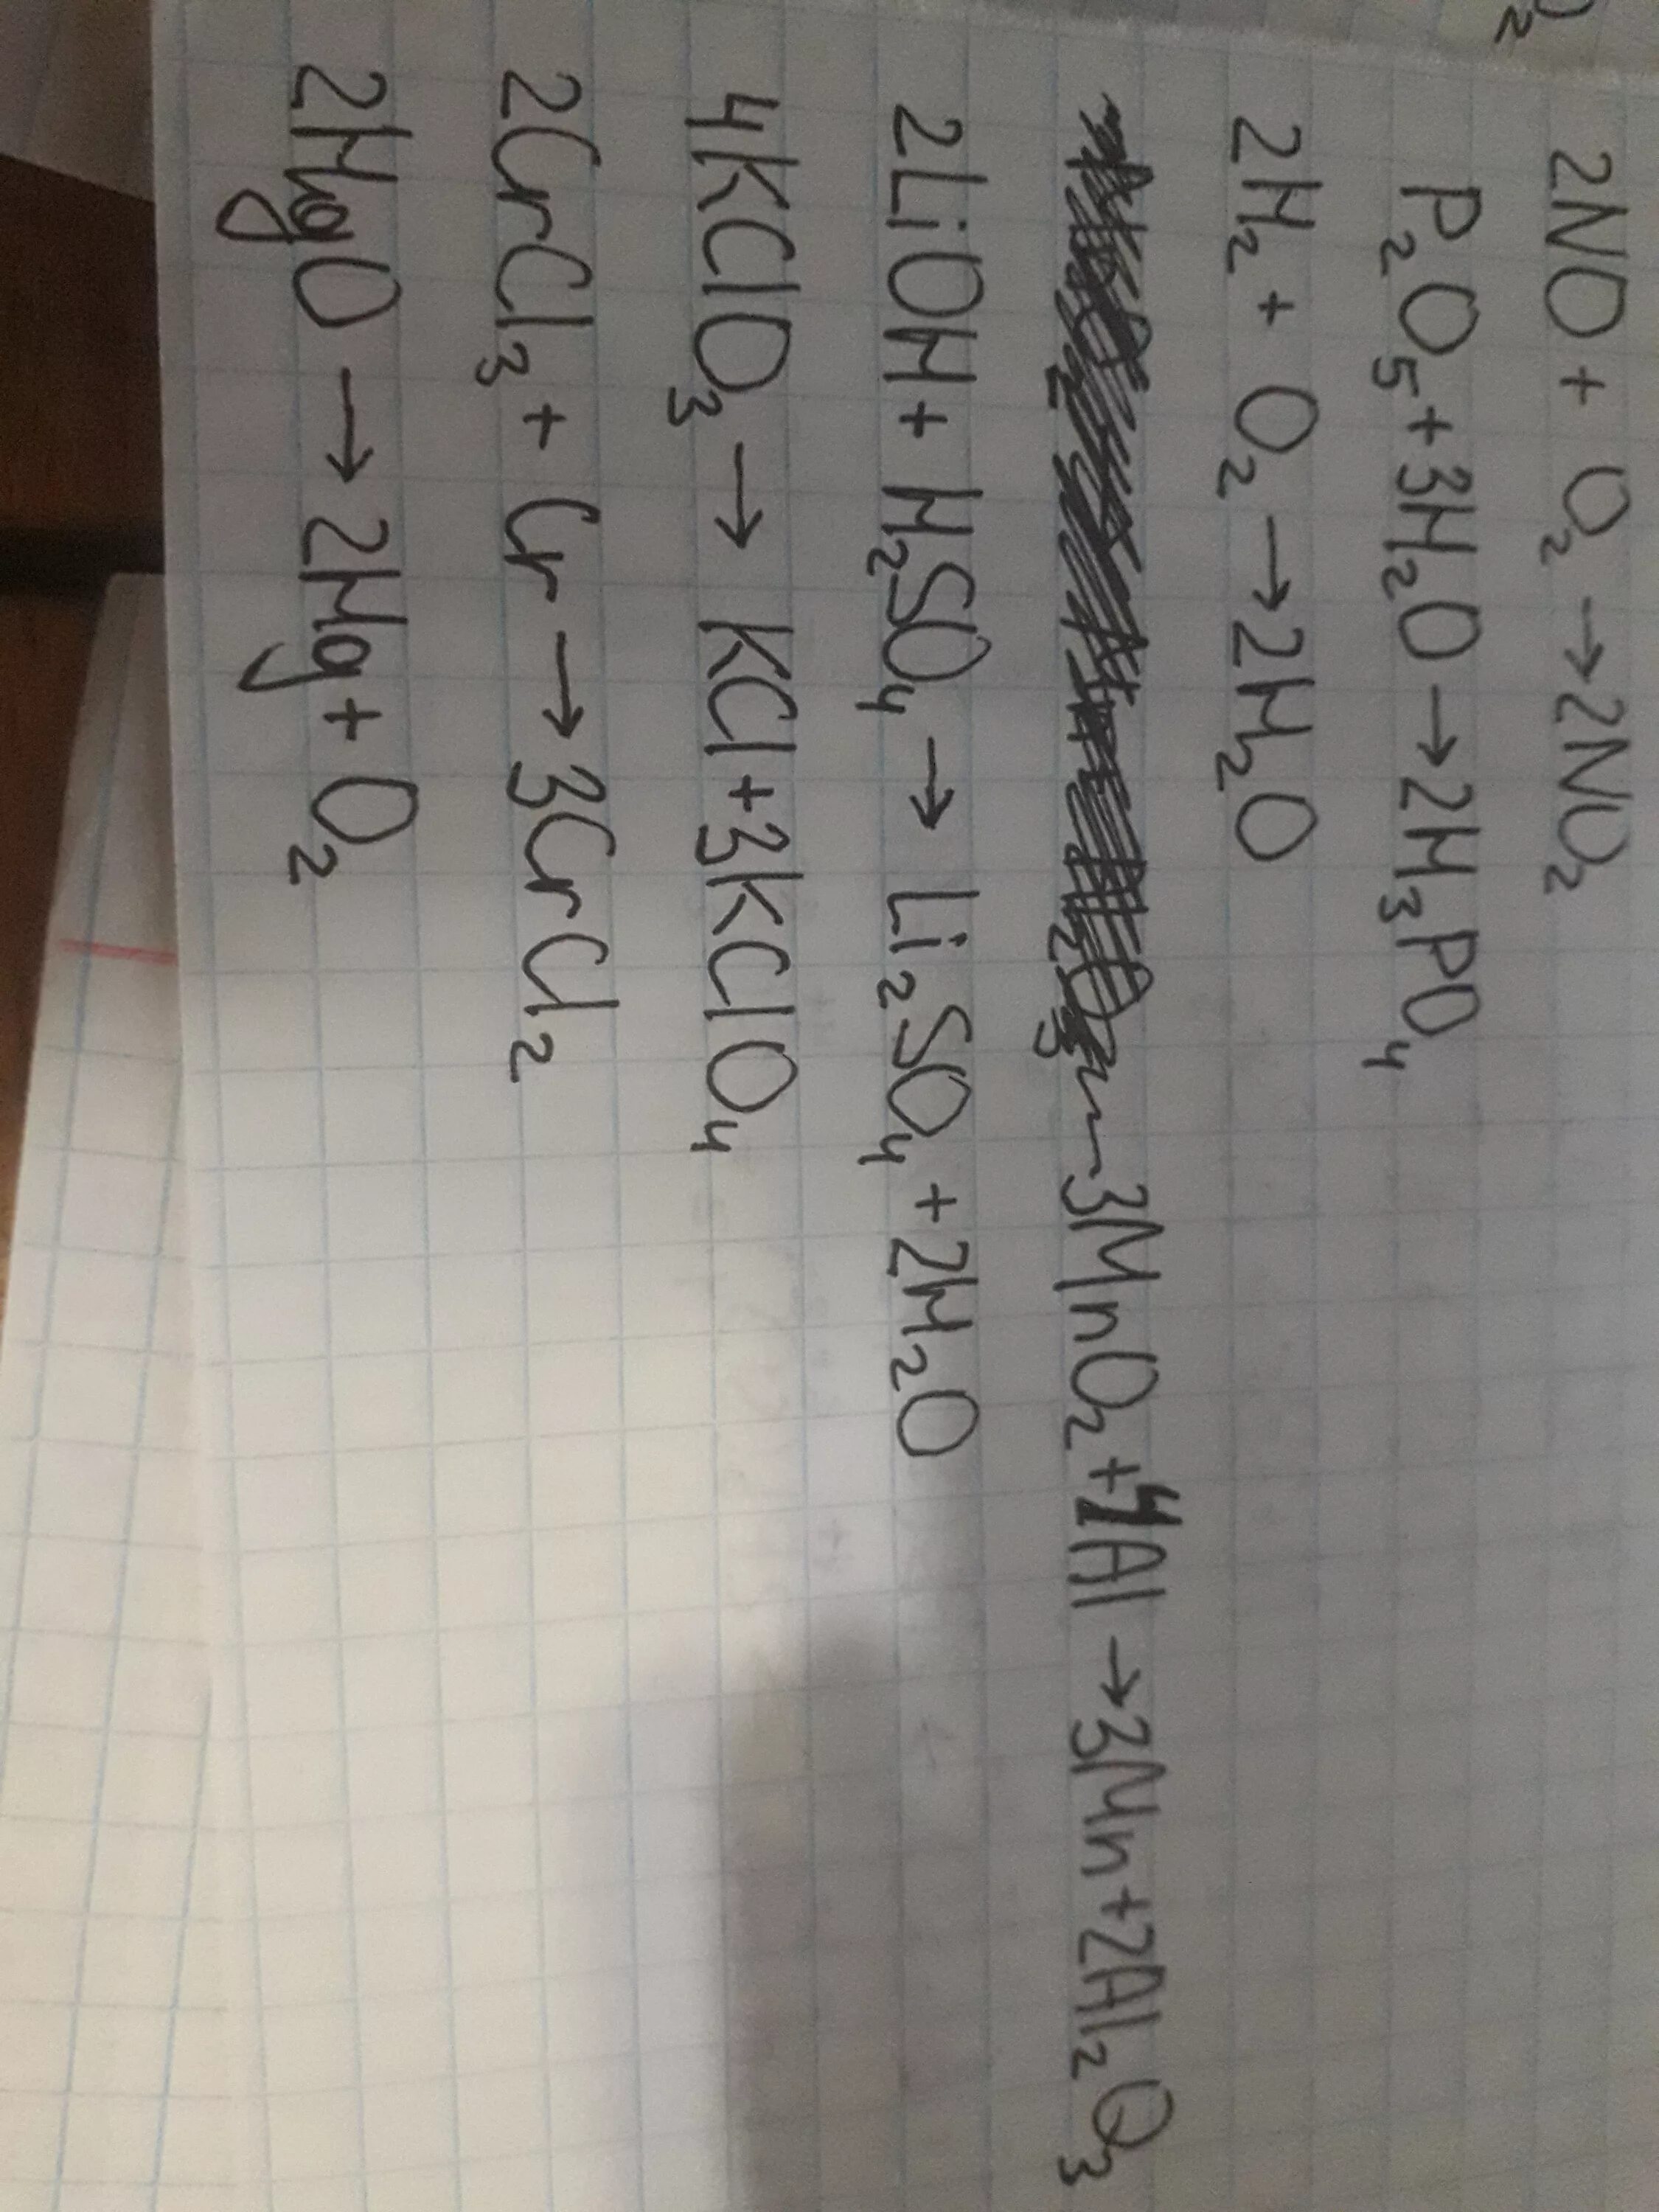 2NO + O₂ → 2NO₂
P₂O₅ + 3H₂O → 2H₃PO₄
2H₂ + O₂ → 2H₂O
3MnO₂ + 4Al → 3Mn + 2Al₂O₃
2LiOH + H₂SO₄ → Li₂SO₄ + 2H₂O
4KClO₃ → KCl + 3KClO₄
2CrCl₃ + Cr → 3CrCl₂
2HgO → 2Hg + O₂